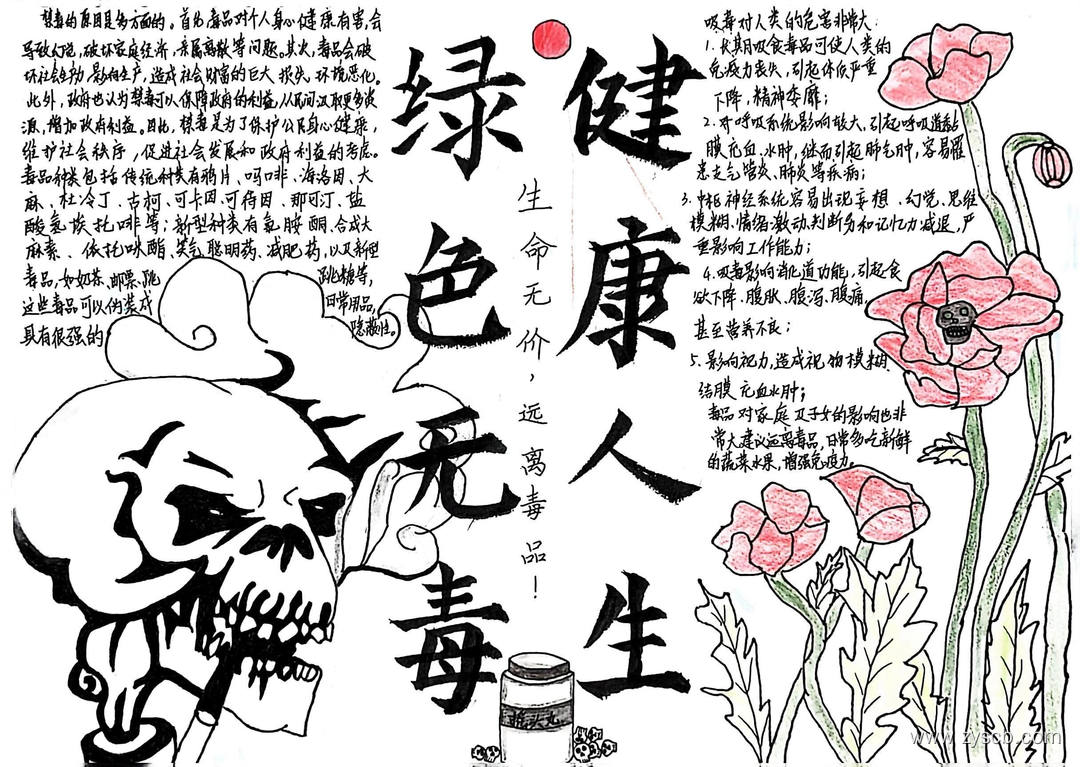 禁毒的原因是多方面的。首先毒品对个人身心健康有害,会
导致幻觉,破坏家庭经济,亲属离散等问题。其次,毒品会破
坏社会生物 影响生产,造成社会财富的巨大 损失、环境恶化。
此外,政府也认为禁毒可以保障政府的利益,从民间汲取更多资
源,增加政府利益。因此,禁毒是为了保护公民身心健康,
维护社会秩序,促进社会发展和政府利益的考虑。
毒品种类包括传统种类有鸦片、吗啡、海洛因、大
麻、杜冷丁、古柯、可卡因、可待因、那可汀、盐
酸氢埃托啡等;新型种类有氯胺酮、合成大
麻素、依托咪酯、笑气、聪明药、减肥药,以及新型
毒品,如奶茶、邮票、跳跳糖等,
这些毒品可以伪装成日常用品,
具有很强的隐蔽性。
绿色无毒
生命无价,远离毒品!
健康人生
摇头丸
吸毒对人类的危害非常大:
1.长期吸食毒品可使人类的
免疫力丧失,引起体低严重
下降,精神委靡;
2.对呼吸系统影响较大,引起呼吸道黏
膜充血、水肿,继而引起肺气肿,容易罹
患支气管炎、肺炎等疾病;
3.中枢神经系统容易出现妄想、幻觉、思维
模糊、情绪激动、判断力和记忆力减退,严
重影响工作能力;
4.吸毒影响消化道功能,引起食
欲下降、腹胀、腹泻、腹痛,
甚至营养不良;
5.影响视力,造成视物模糊、
结膜充血水肿;
毒品对家庭及子女的影响也非
常大建议远离毒品,日常多吃新鲜
的蔬菜水果,增强免疫力。
www.zyscb.com